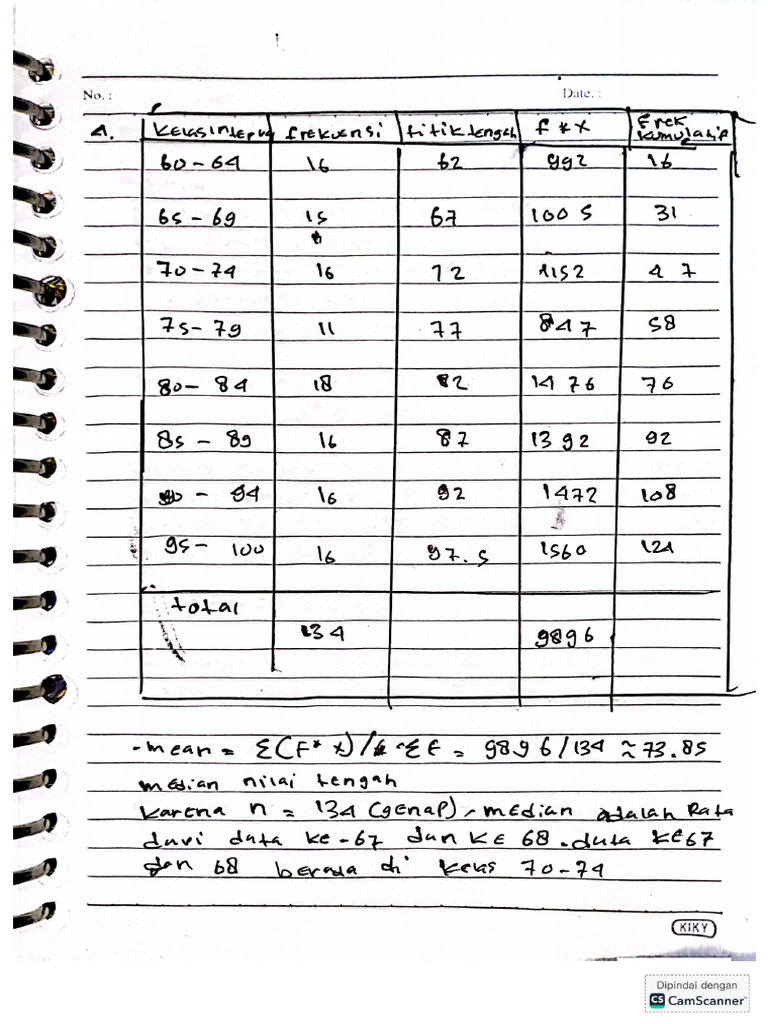 No. :
Date. :
A. Kelas interval frekuensi titik tengah f * x frek kumulatif
60 - 64 16 62 992 16
65 - 69 15 67 1005 31
70 - 74 16 72 1152 47
75 - 79 11 77 847 58
80 - 84 18 82 1476 76
85 - 89 16 87 1392 92
90 - 94 16 92 1472 108
95 - 100 16 97.5 1560 124
total
134 9896
- mean = Σ(F* x)/ Σf = 9896/134 ≈ 73.85
median nilai tengah
karena n = 134 (genap), median adalah Rata
dari data ke-67 dan KE 68. data KE67
dan 68 berada di kelas 70-74
KIKY
Dipindai dengan
CS CamScanner